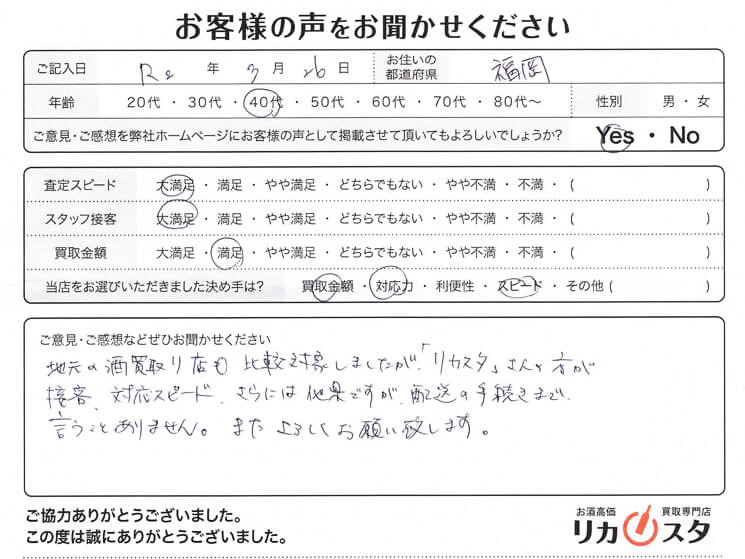 お客様の声をお聞かせください
ご記入日 R2 年 3 月 26 日 お住いの都道府県 福岡
年齢 20代・30代・40代・50代・60代・70代・80代〜 性別 男・女
ご意見・ご感想を弊社ホームページにお客様の声として掲載させて頂いてもよろしいでしょうか? Yes・No
査定スピード 大満足・満足・やや満足・どちらでもない・やや不満・不満・( )
スタッフ接客 大満足・満足・やや満足・どちらでもない・やや不満・不満・( )
買取金額 大満足・満足・やや満足・どちらでもない・やや不満・不満・( )
当店をお選びいただきました決め手は? 買取金額・対応力・利便性・スピード・その他( )
ご意見・ご感想などぜひお聞かせください
地元の酒買取り店も比較対象しましたが、「リカスタ」さんの方が
接客、対応スピード、さらには他県ですが、配送の手続きまで
言うことありません。またよろしくお願い致します。
ご協力ありがとうございました。
この度は誠にありがとうございました。
お酒高価 買取専門店
リカスタ